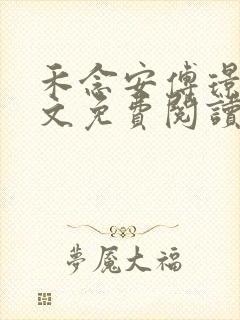 禾念安傅璟
文免費閱讀
夢魘大福